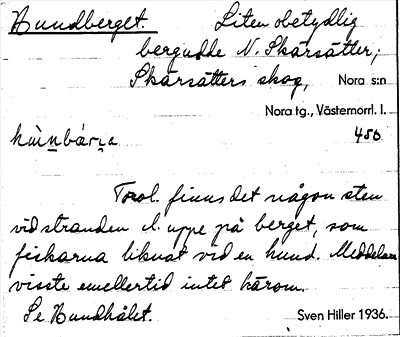 Hundberget. Liten obetydlig
bergudde N. Skärsätter,
Skärsätters skog, Nora s:n
Nora tg., Västernorrl. l.
450
Trol. finns det någon sten
vid stranden l. uppe på berget, som
fiskarna liknat vid en hund. Meddelaren
visste emellertid intet härom.
Se Hundhålet. Sven Hiller 1936.